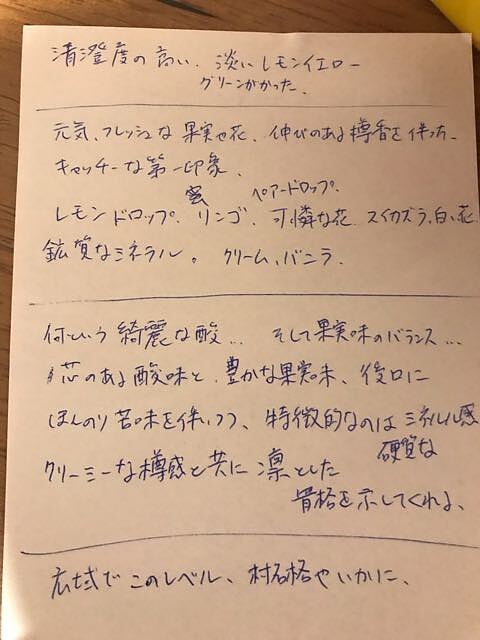 清澄度の高い、淡いレモンイエロー
グリーンがかった、
元気、フレッシュな果実や花、伸びのある樽香を伴った、
キャッチーな第一印象、
蜜 ペアードロップ、
レモンドロップ、リンゴ、可憐な花、スイカズラ、白い花
鉱質なミネラル。クリーム、バニラ、
何という綺麗な酸... そして果実味のバランス...
芯のある酸味と、豊かな果実味、後口に
ほんのり苦味を伴いつつ、特徴的なのはミネラル感
硬質な
クリーミーな樽感と共に凛とした
骨格を示してくれる、
広域でこのレベル、村名格やいかに、